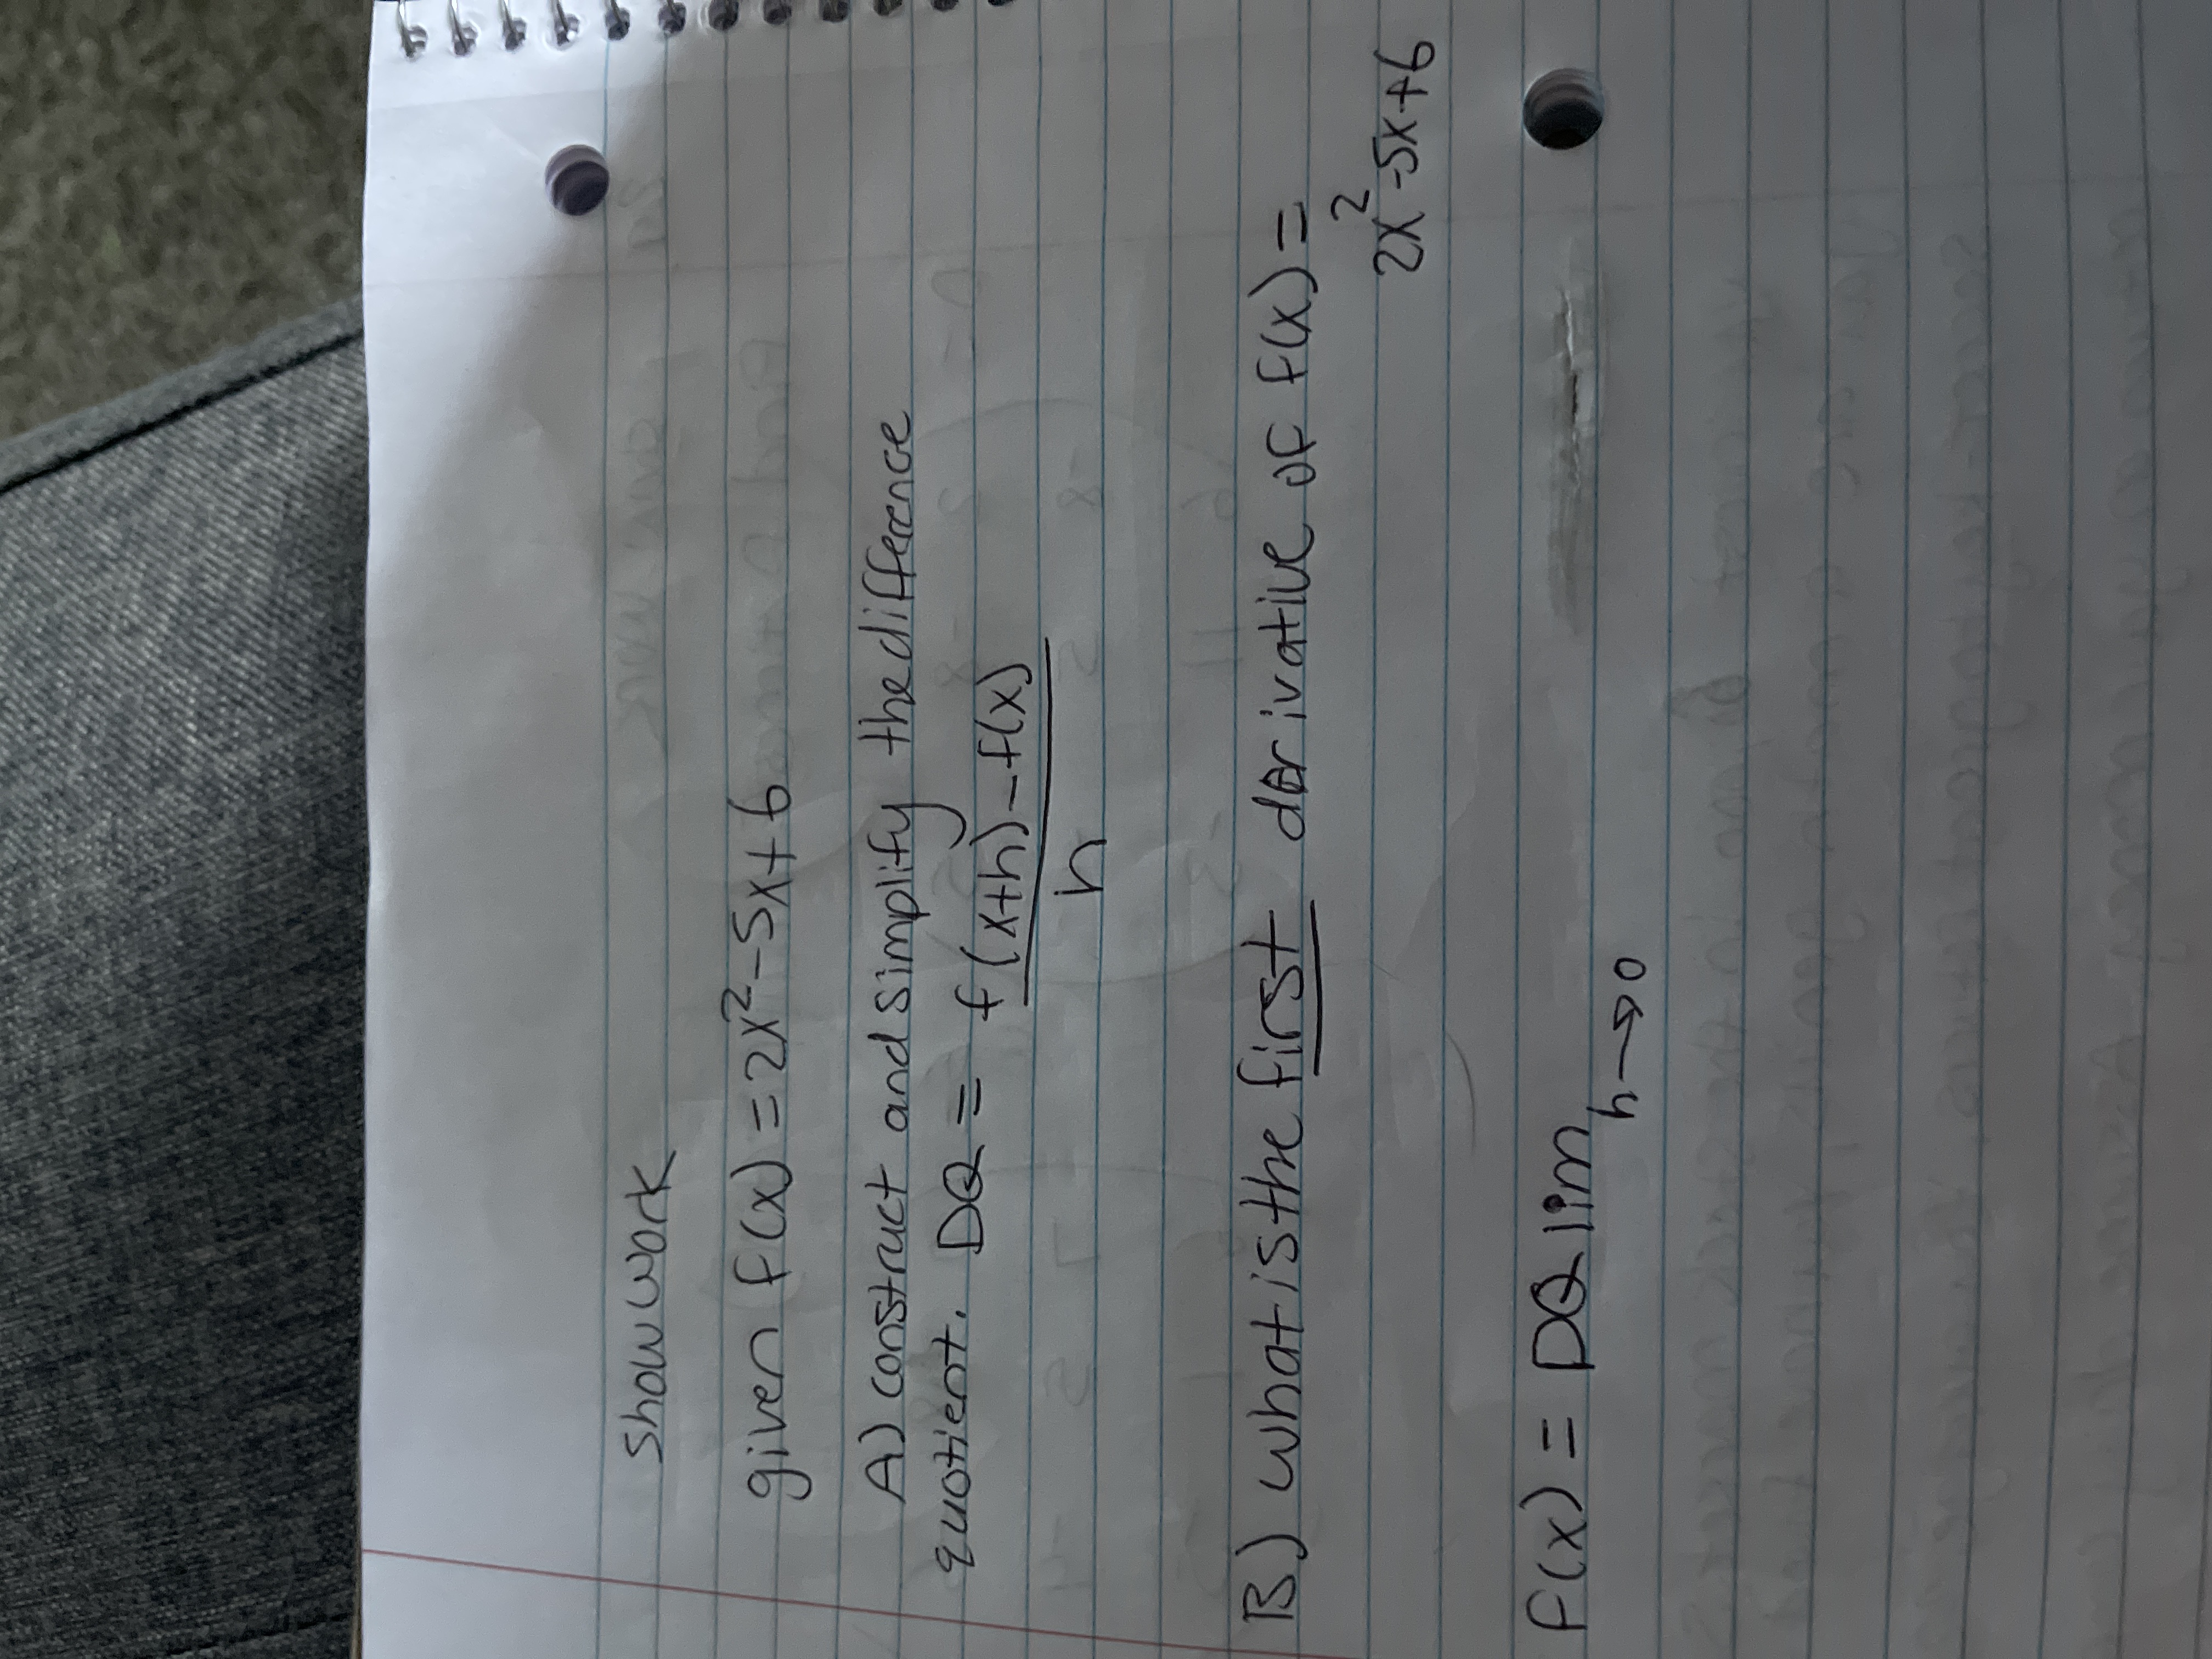 show work
given f(x) = 2x² - 5x + 6
A) construct and simplify the difference
quotient. DQ = f(x+h) - f(x)
h
B.) what is the first derivative of f(x) =
2x² - 5x + 6
f(x) = DQ lim
h → 0